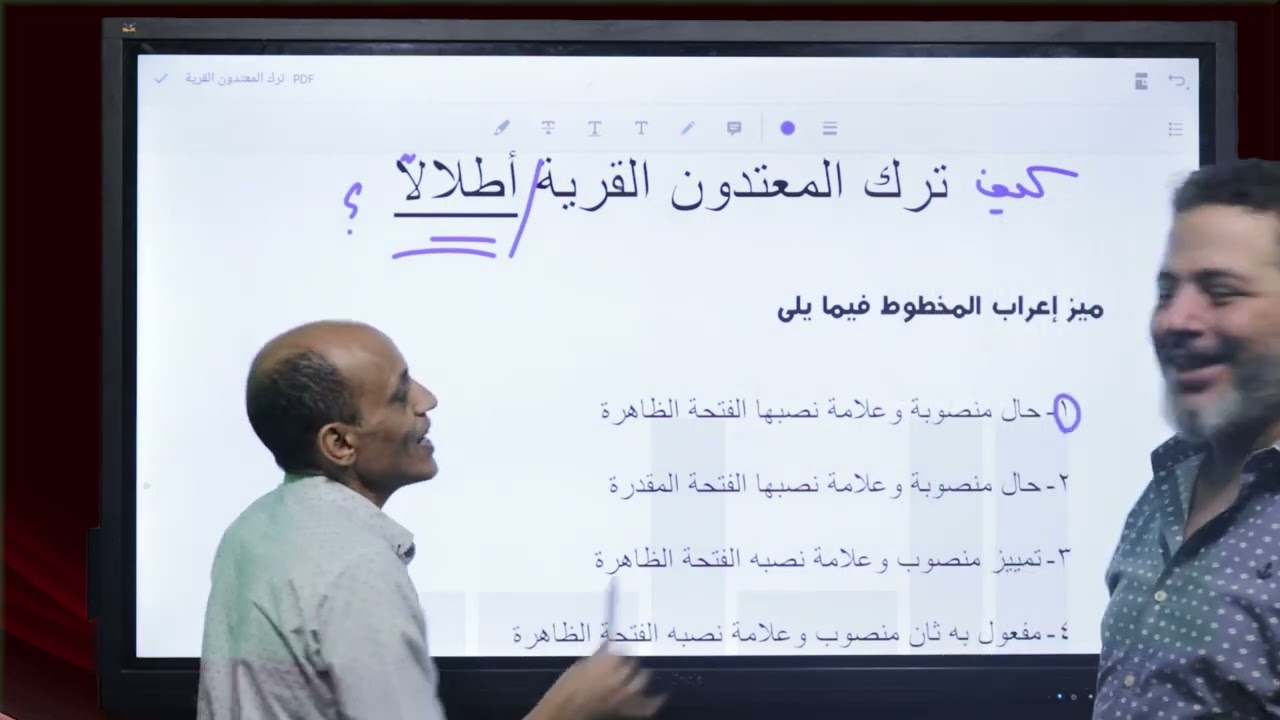 ترك المعتدون القرية PDF
كيف ترك المعتدون القرية / أطلالاً ؟
ميز إعراب المخطوط فيما يلى
١- حال منصوبة وعلامة نصبها الفتحة الظاهرة
٢- حال منصوبة وعلامة نصبها الفتحة المقدرة
٣- تمييز منصوب وعلامة نصبه الفتحة الظاهرة
٤- مفعول به ثان منصوب وعلامة نصبه الفتحة الظاهرة